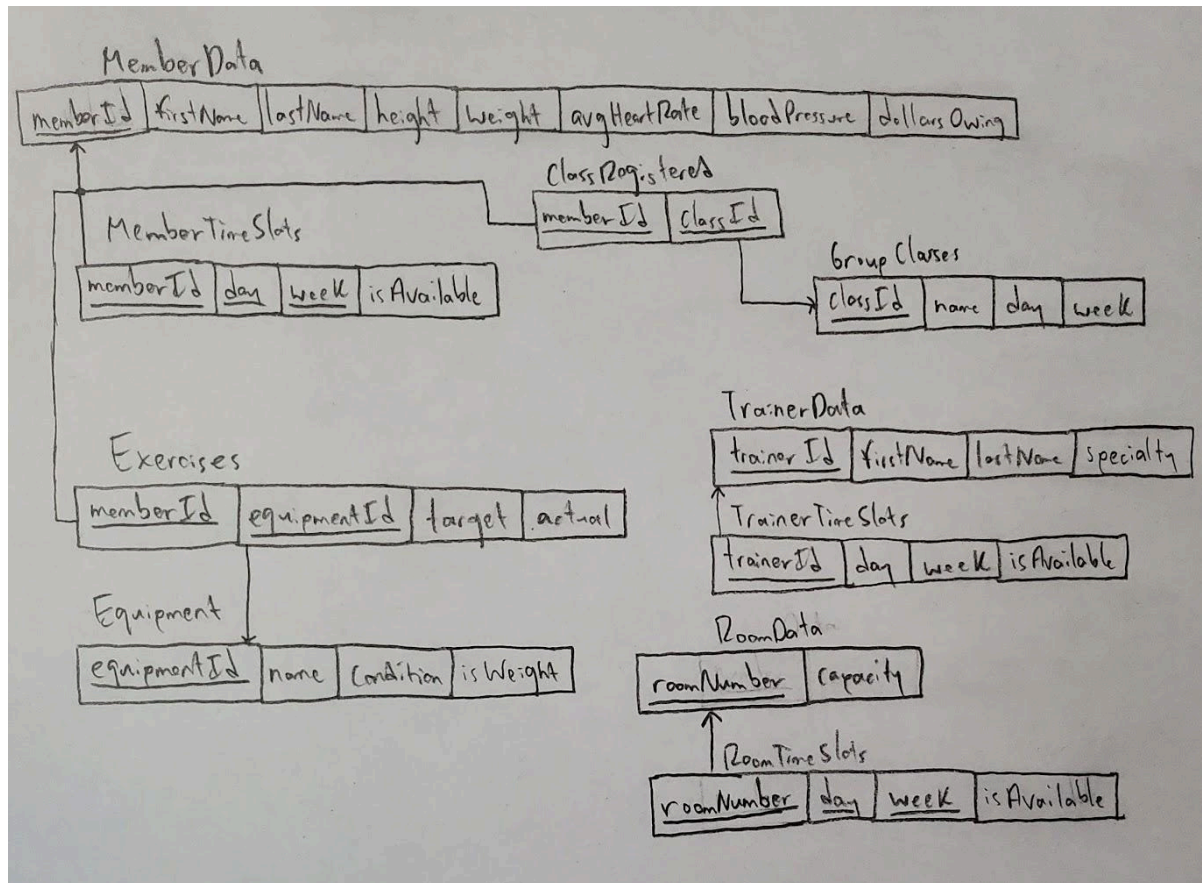 MemberData
memberId firstName lastName height weight avgHeartRate bloodPressure dollarsOwing
ClassRegistered
memberId classId
MemberTimeSlots
memberId day week isAvailable
GroupClasses
classId name day week
TrainerData
trainerId firstName lastName specialty
Exercises
memberId equipmentId target actual
TrainerTimeSlots
trainerId day week isAvailable
Equipment
equipmentId name condition isWeight
RoomData
roomNumber capacity
RoomTimeSlots
roomNumber day week isAvailable